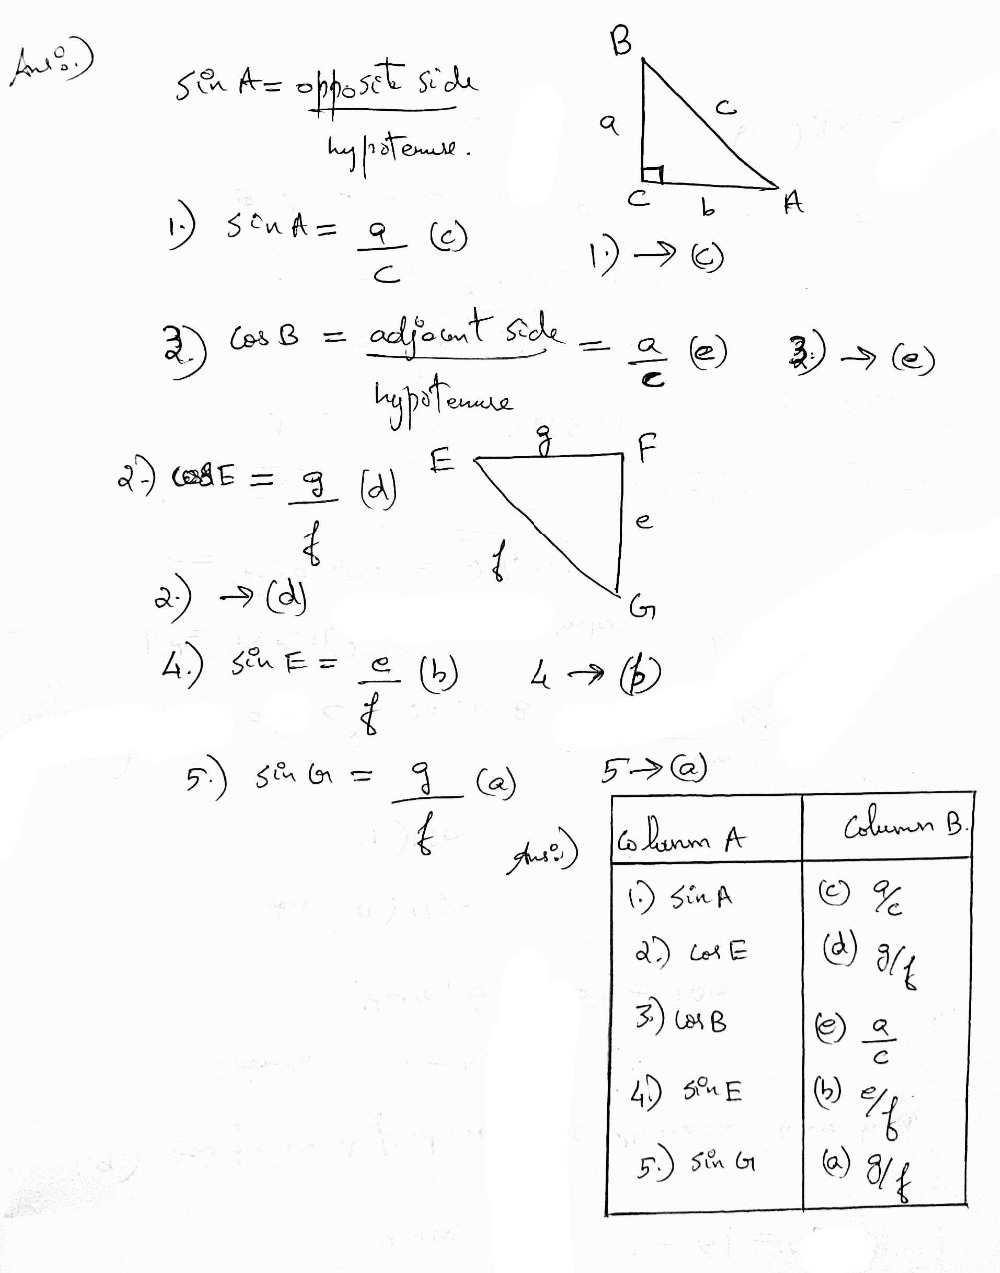 Ans:)
sin A = opposite side
hypotenuse.
B
a
c
C
b
A
1.) sin A = a/c (c)
1.) → (c)
3.) cos B = adjacent side / hypotenuse = a/c (e)
3.) → (e)
2.) cos E = g/f (d)
E
g
F
e
f
G
2.) → (d)
4.) sin E = e/f (b)
4 → (b)
5.) sin G = g/f (a)
5 → (a)
Ans:)
Column A Column B.
1.) sin A (c) a/c
2.) cos E (d) g/f
3.) cos B (e) a/c
4.) sin E (b) e/f
5.) sin G (a) g/f